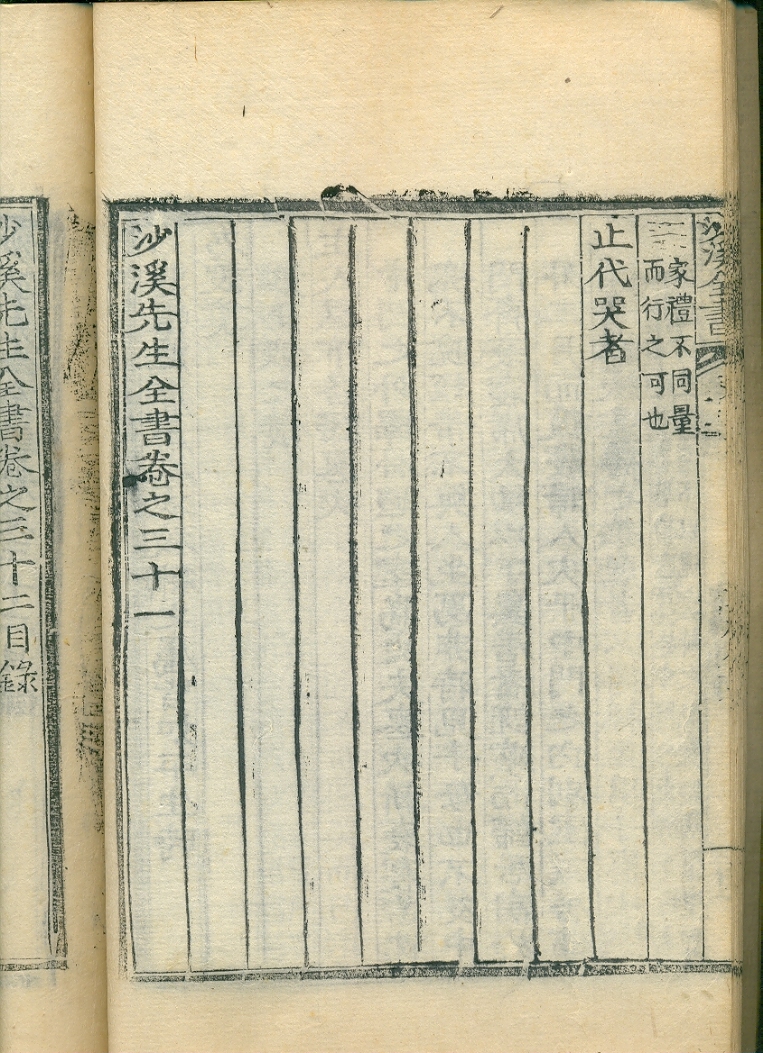 沙溪全書
家禮不同量
而行之可也
止代哭者
沙溪先生全書卷之三十一
沙溪先生全書卷之三十二目錄